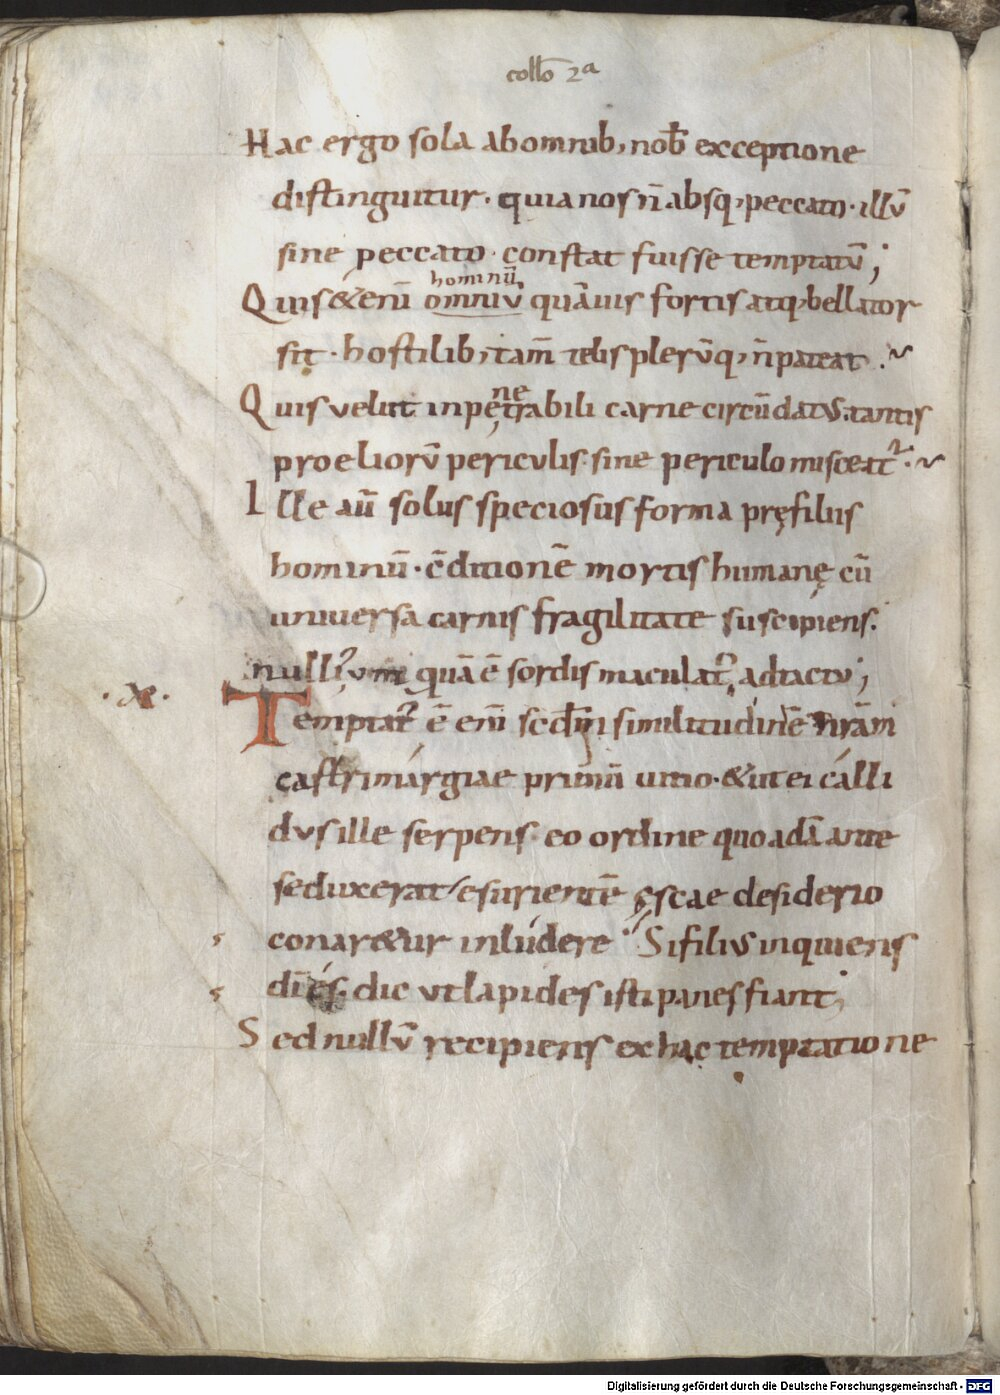 collo 2ᵃ
Hac ergo sola abomnib; nob̄ exceptione
distinguitur· quia nos n̄ absq; peccato· illū
sine peccato· constat fuisse temptatū;
hominū
Quis & eni omniū quāuis fortis atq; bellator
sit· hostilib; tam̄ telis plerūq; n̄ pateat·
ne
Quis velut inpetrabili carne circūdatus· tantis
proeliorū periculis· sine periculo misceat᷑·
Ille aū solus speciosus forma pręfiliis
hominū· c̄ditionē mortis humanę cū
universa carnis fragilitate suscipiens·
nulli᷒ umquā ē sordis maculat᷒ adtactu;
·x·
Temptat᷒ ē eni scdm similitudinē nr̄am
castrimargiae primū vitio· & ut ei calli
dus ille serpens eo ordine quo adā ante
seduxerat esurientē escae desiderio
conar&ur inludere· Si filius inquiens
dī es· dic ut lapides isti panes fiant;
Sed nullū recipiens ex hac temptatione
Digitalisierung gefördert durch die Deutsche Forschungsgemeinschaft - DFG